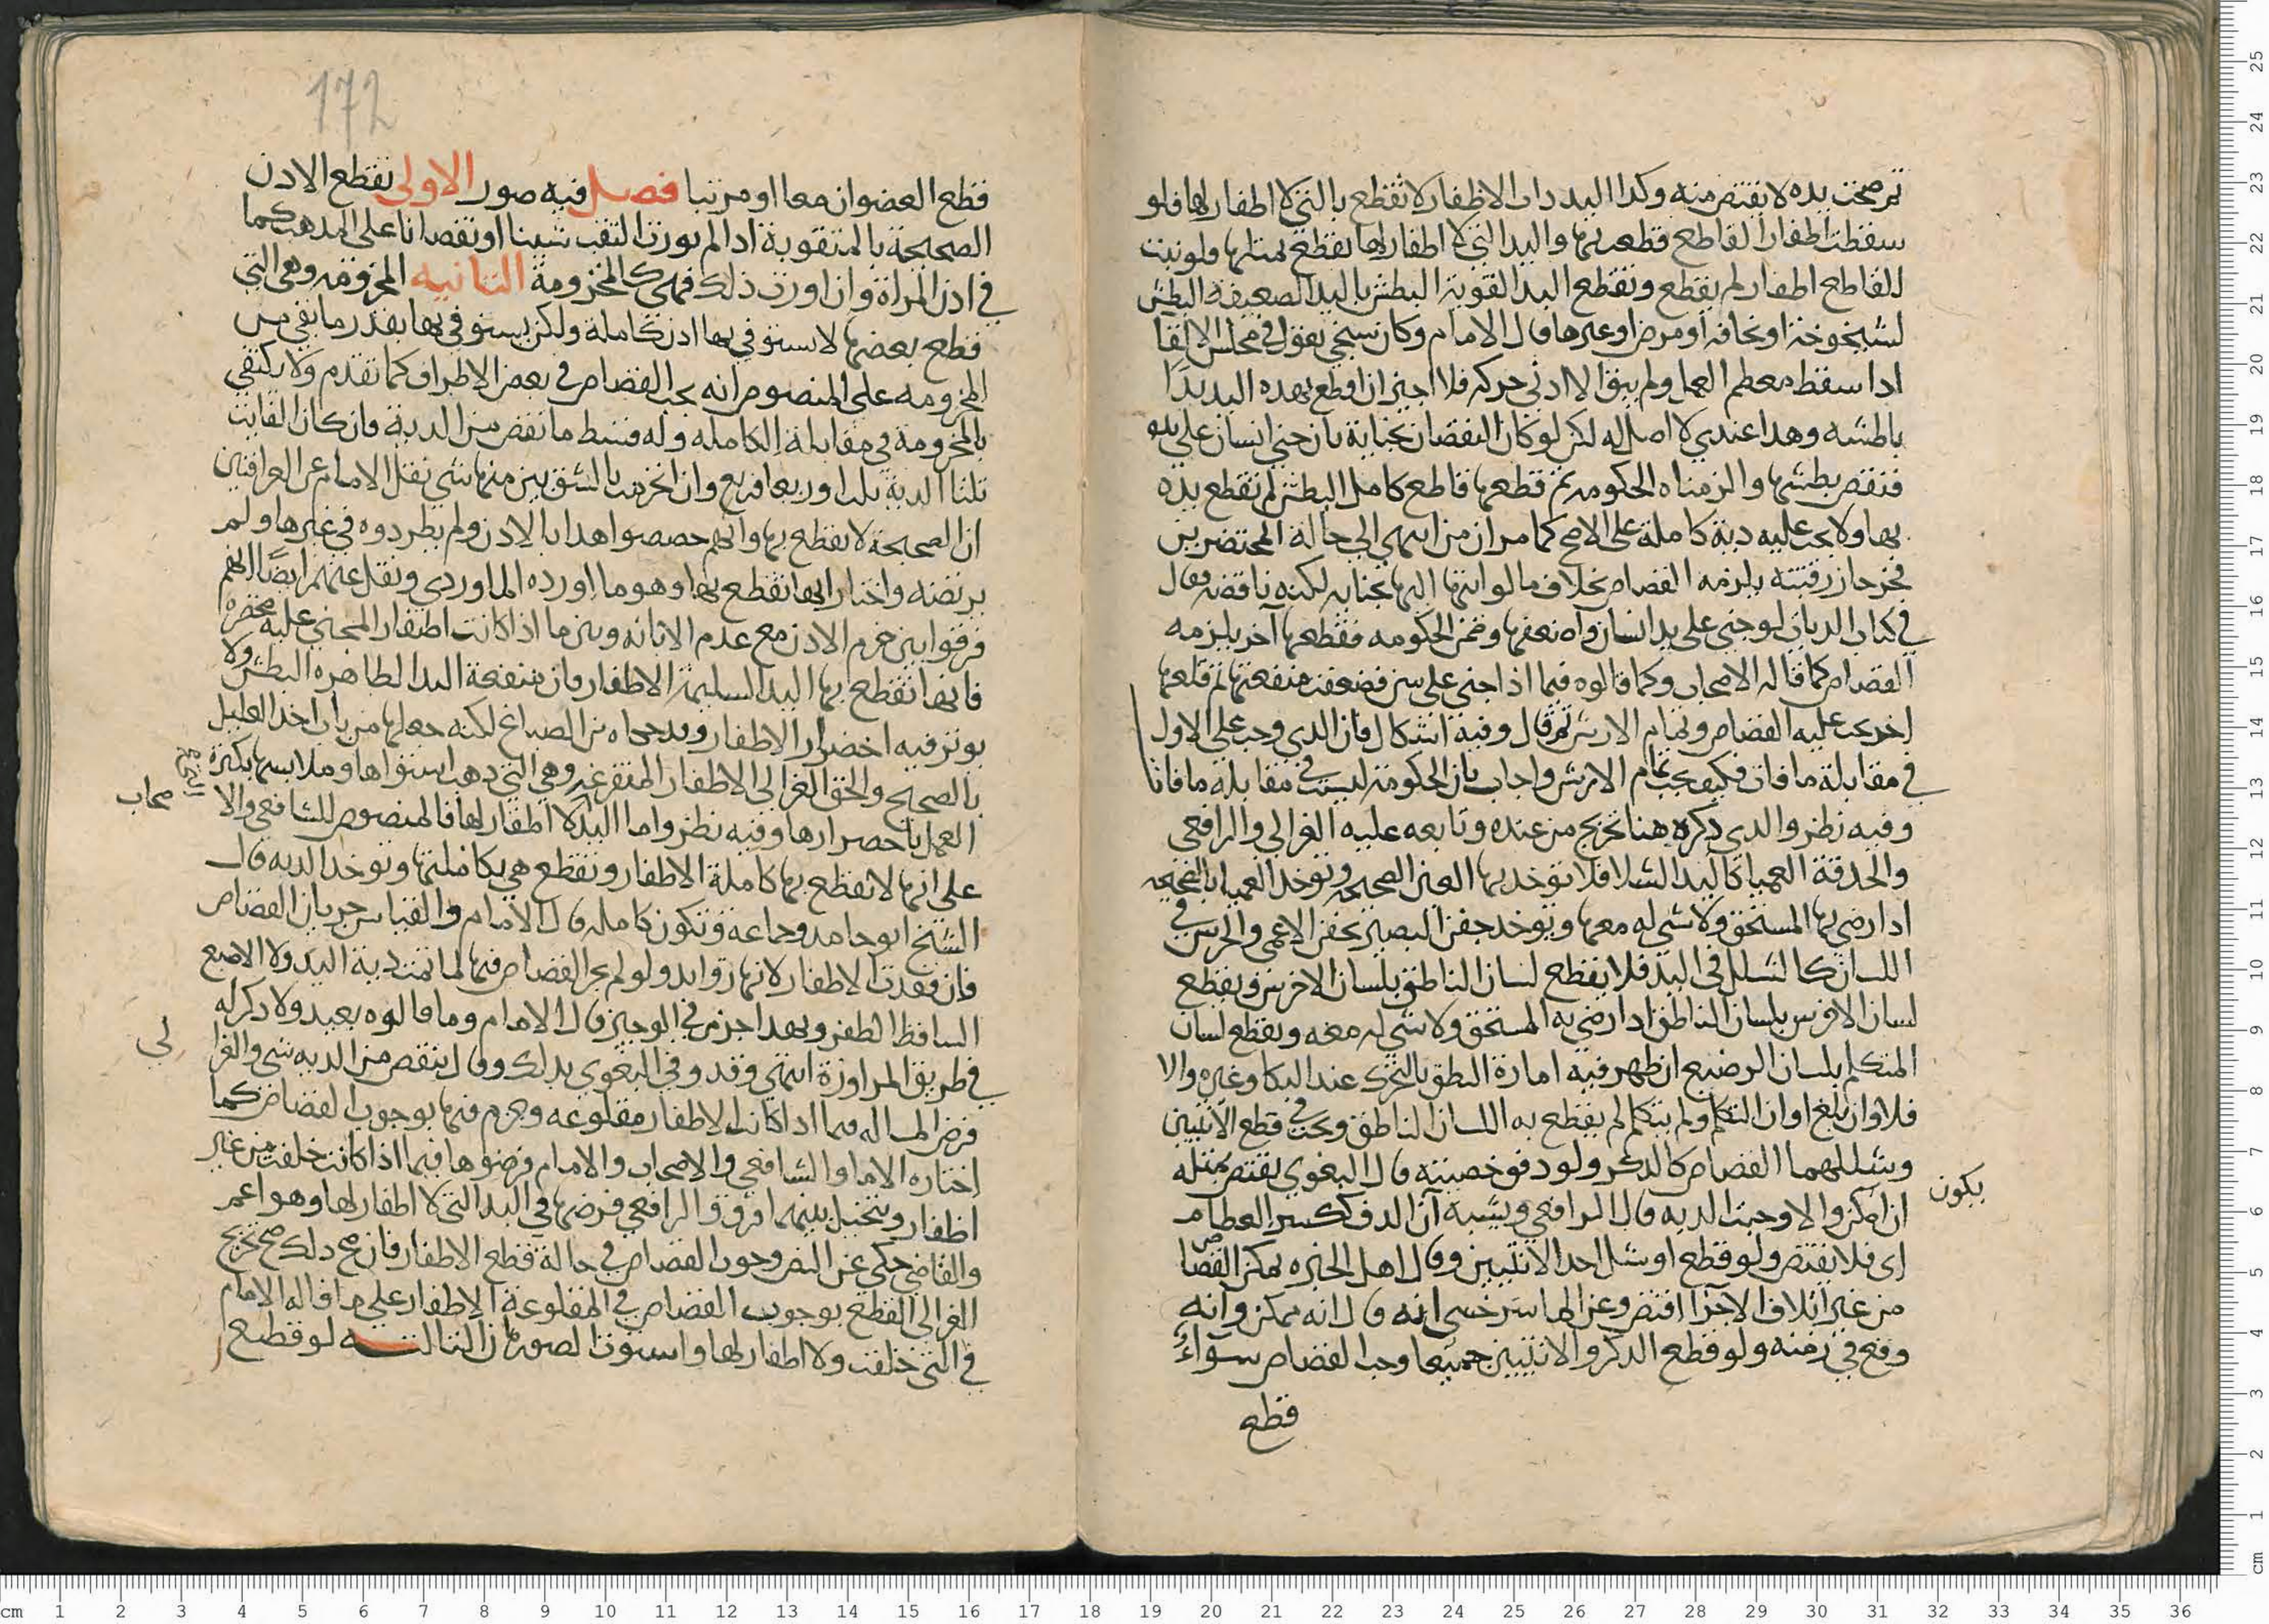 ثم صحت يده لا يقتص منه وكذا اليد ذات الاظفار لا تقطع بالتي لا اظفار لها فلو
سقطت اظفار القاطع قطعت بها واليد التي لا اظفار لها تقطع بمثلها ولو نبت
القاطع اظفار لم يقطع وتقطع اليد القوية البطش باليد الضعيفة البطش
لشيخوخة او نحافة او مرض او غيرها قال الامام وكان شيخي يقول في مجلس الالقا
اذا سقط معظم العمل ولم يبق الا ادنى حركة فلا اجيز ان اقطع بهذه اليد يدًا
باطشه وهذا عندي لا اصل له لكن لو كان النقصان بجناية بان جنى انسان على يد
فنقص بطشها والزمناه الحكومة ثم قطعها قاطع كامل البطش لم تقطع يده
بها ولا يجب عليه دية كاملة على الاصح كما مر ان من انتهى الى حالة المحتضرين
فحز حاز رقبته يلزمه القصاص بخلاف ما لو انتهى اليها بجناية لكنه ناقضه فقال
في كتاب الديات لو جنى على يد انسان وضعفها وضمن الحكومه فقطعها آخر يلزمه
القصاص كما قاله الاصحاب وكما قالوه فيما اذا جنى على سن فضعفت منفعتها ثم قلعها
اخر يجب عليه القصاص وتمام الارش ثم قال وفيه اشكال فان الذي وجب على الاول
في مقابلة ما فات فكيف يجب تمام الارش واجاب بان الحكومة ليست في مقابلة ما فات
وفيه نظر والذي ذكره هنا تخريج من عنده وتابعه عليه الغزالي والرافعي
والحدقة العميا كاليد الشلا فلا تؤخذ بها العين الصحيحة وتوخذ العميا بالصحيحه
اذا رضي بها المستحق ولا شي له معها ويوخذ جفن البصير بجفن الاعمى والخرس في
اللسان كالشلل في اليد فلا يقطع لسان الناطق بلسان الاخرس ويقطع
لسان الاخرس بلسان الناطق اذا رضي به المستحق ولا شي له معه ويقطع لسان
المتكلم بلسان الرضيع ان ظهر فيه امارة النطق بالتحرك عند البكا وغيره والا
فلا وان بلغ اوان التكلم ولم يتكلم لم يقطع به اللسان الناطق ويجب في قطع الانثيين
وشللهما القصاص كالذكر ولو دق خصيته قال البغوي يقتص بمثله
ان امكن والا وجبت الديه قال الرافعي ويشبه ان الدق ككسر العظام
يكون
اى فلا يقتص ولو قطع او شل احد الانثيين وقال اهل الخبره يمكن القصاص
من غير اتلاف الاخرى اقتص وعن الماسرخسي انه قال انه ممكن وانه
وقع في زمنه ولو قطع الذكر والانثيين جميعا وجب القصاص سواءً
قطع
172
قطع العضوان معا او مرتبا فصل فيه صور الاولى تقطع الاذن
الصحيحة بالمثقوبة اذا لم يورث الثقب شينا او نقصانا على المذهب كما
في اذن المراة وان اورث ذلك فهي كالمخزومة الثانيه المخزومه وهي التي
قطع بعضها لا يستوفي بها اذن كاملة ولكن يستوفي بها بقدر ما بقي من
المخزومه على المنصوص انه يجب القصاص في بعض الاطراف كما تقدم ولا يكتفي
بالمخزومة في مقابلة الكامله وله قسط ما نقص من الدية فان كان الفايت
ثلثا الدية ثلثا او ربعا فربع وان انخرمت بالشق بين منها شي نقل الامام عن العراقيين
ان الصحيحة لا تقطع بها وانهم خصصوا هذا بالاذن ولم يطردوه في غيرها ولم
يرتضه واختار انها تقطع بها وهو ما اورده الماوردي ونقل عنهم ايضًا انهم
فرقوا بين خرم الاذن مع عدم الابانه وبين ما اذا كانت اظفار المجني عليه مخضره
فانها تقطع بها اليد السليمة الاظفار فان منفعة اليد الظاهره البطش ولا
يوثر فيه اخضرار الاظفار وقد حكاه ابن الصباغ لكنه جعلها من باب اخذ العليل
بالصحيح والحق الغزالي الاظفار المتقرعه وهي التي ذهب استواها وملاستها بكثرة
العمل باخضرارها وفيه نظر واما اليد لا اظفار لها فالمنصوص للشافعي والا
صحاب
على انها لا تقطع بها كاملة الاظفار وتقطع هي بكاملتها وتوخذ الديه قال
الشيخ ابو حامد وجماعه وتكون كامله قال الامام والقياس جريان القصاص
فان فقدت الاظفار لانها زوايد ولو لم يجر القصاص فيها لما تمت دية اليد ولا الاصبع
الساقط الظفر وبهذا جزم في الوجيز قال الامام وما قالوه بعيد ولا ذكر له
في طريق المراوزة انتهى وقد وفى البغوي بذلك وقال ينقص من الديه شي والغزا
لي
فرض المساله فيما اذا كانت الاظفار مقلوعه وجزم فيها بوجوب القصاص كما
اختاره الامام والشافعي والاصحاب والامام فرضوها فيما اذا كانت خلقت من غير
اظفار ويتخيل بينهما فرق والرافعي فرضها في اليد التي لا اظفار لها وهو اعم
والقاضي حكى عن النص وجوب القصاص في حالة قطع الاظفار فان صح ذلك صح تخريج
الغزالي القطع بوجوب القصاص في المقلوعة الاظفار على ما قاله الامام
في التي خلقت ولا اظفار لها واستوت الصورتان الثالثه لو قطع